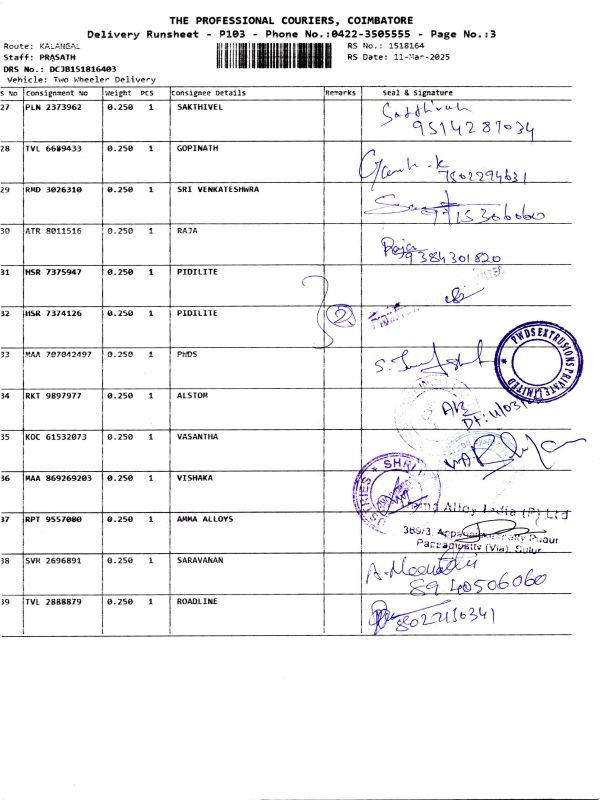 THE PROFESSIONAL COURIERS, COIMBATORE
Delivery Runsheet - P103 - Phone No.:0422-3505555 - Page No.:3
Route: KALANGAL RS No.: 1518164
Staff: PRASATH RS Date: 11-Mar-2025
DRS No.: DCJB1S1816403
Vehicle: Two Wheeler Delivery
S No Consignment No Weight PCS Consignee Details Remarks Seal & Signature
27 PLN 2373962 0.250 1 SAKTHIVEL Sakthivel
9514287034
28 TVL 6689433 0.250 1 GOPINATH
7502294631
29 RMD 3026310 0.250 1 SRI VENKATESHWRA
30 ATR 8011516 0.250 1 RAJA Raja
9384301820
31 HSR 7375947 0.250 1 PIDILITE
32 HSR 7374126 0.250 1 PIDILITE 2
33 MAA 707042497 0.250 1 PWDS
PWDS EXTRUSIONS PRIVATE LIMITED
34 RKT 9897977 0.250 1 ALSTOM
35 KOC 61532073 0.250 1 VASANTHA
36 MAA 869269203 0.250 1 VISHAKA SHRI
37 RPT 9557080 0.250 1 AMMA ALLOYS Alloy India (P) Ltd
389/3,
Pappampatty (Via), Sulur
38 SVM 2696891 0.250 1 SARAVANAN
8940506060
39 TVL 2888879 0.250 1 ROADLINE